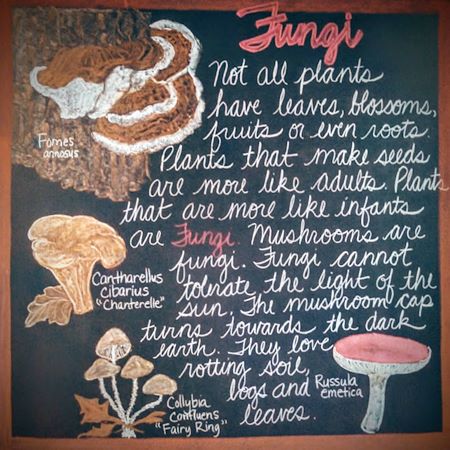 Fungi
Not all plants
have leaves, blossoms,
fruits or even roots.
Plants that make seeds
are more like adults. Plants
that are more like infants
are Fungi. Mushrooms are
fungi. Fungi cannot
tolerate the light of the
sun. The mushroom cap
turns towards the dark
earth. They love
rotting soil,
bogs and
leaves.
Fomes
annosus
Cantharellus
Cibarius
"Chanterelle"
Collybia
Confluens
"Fairy Ring"
Russula
emetica